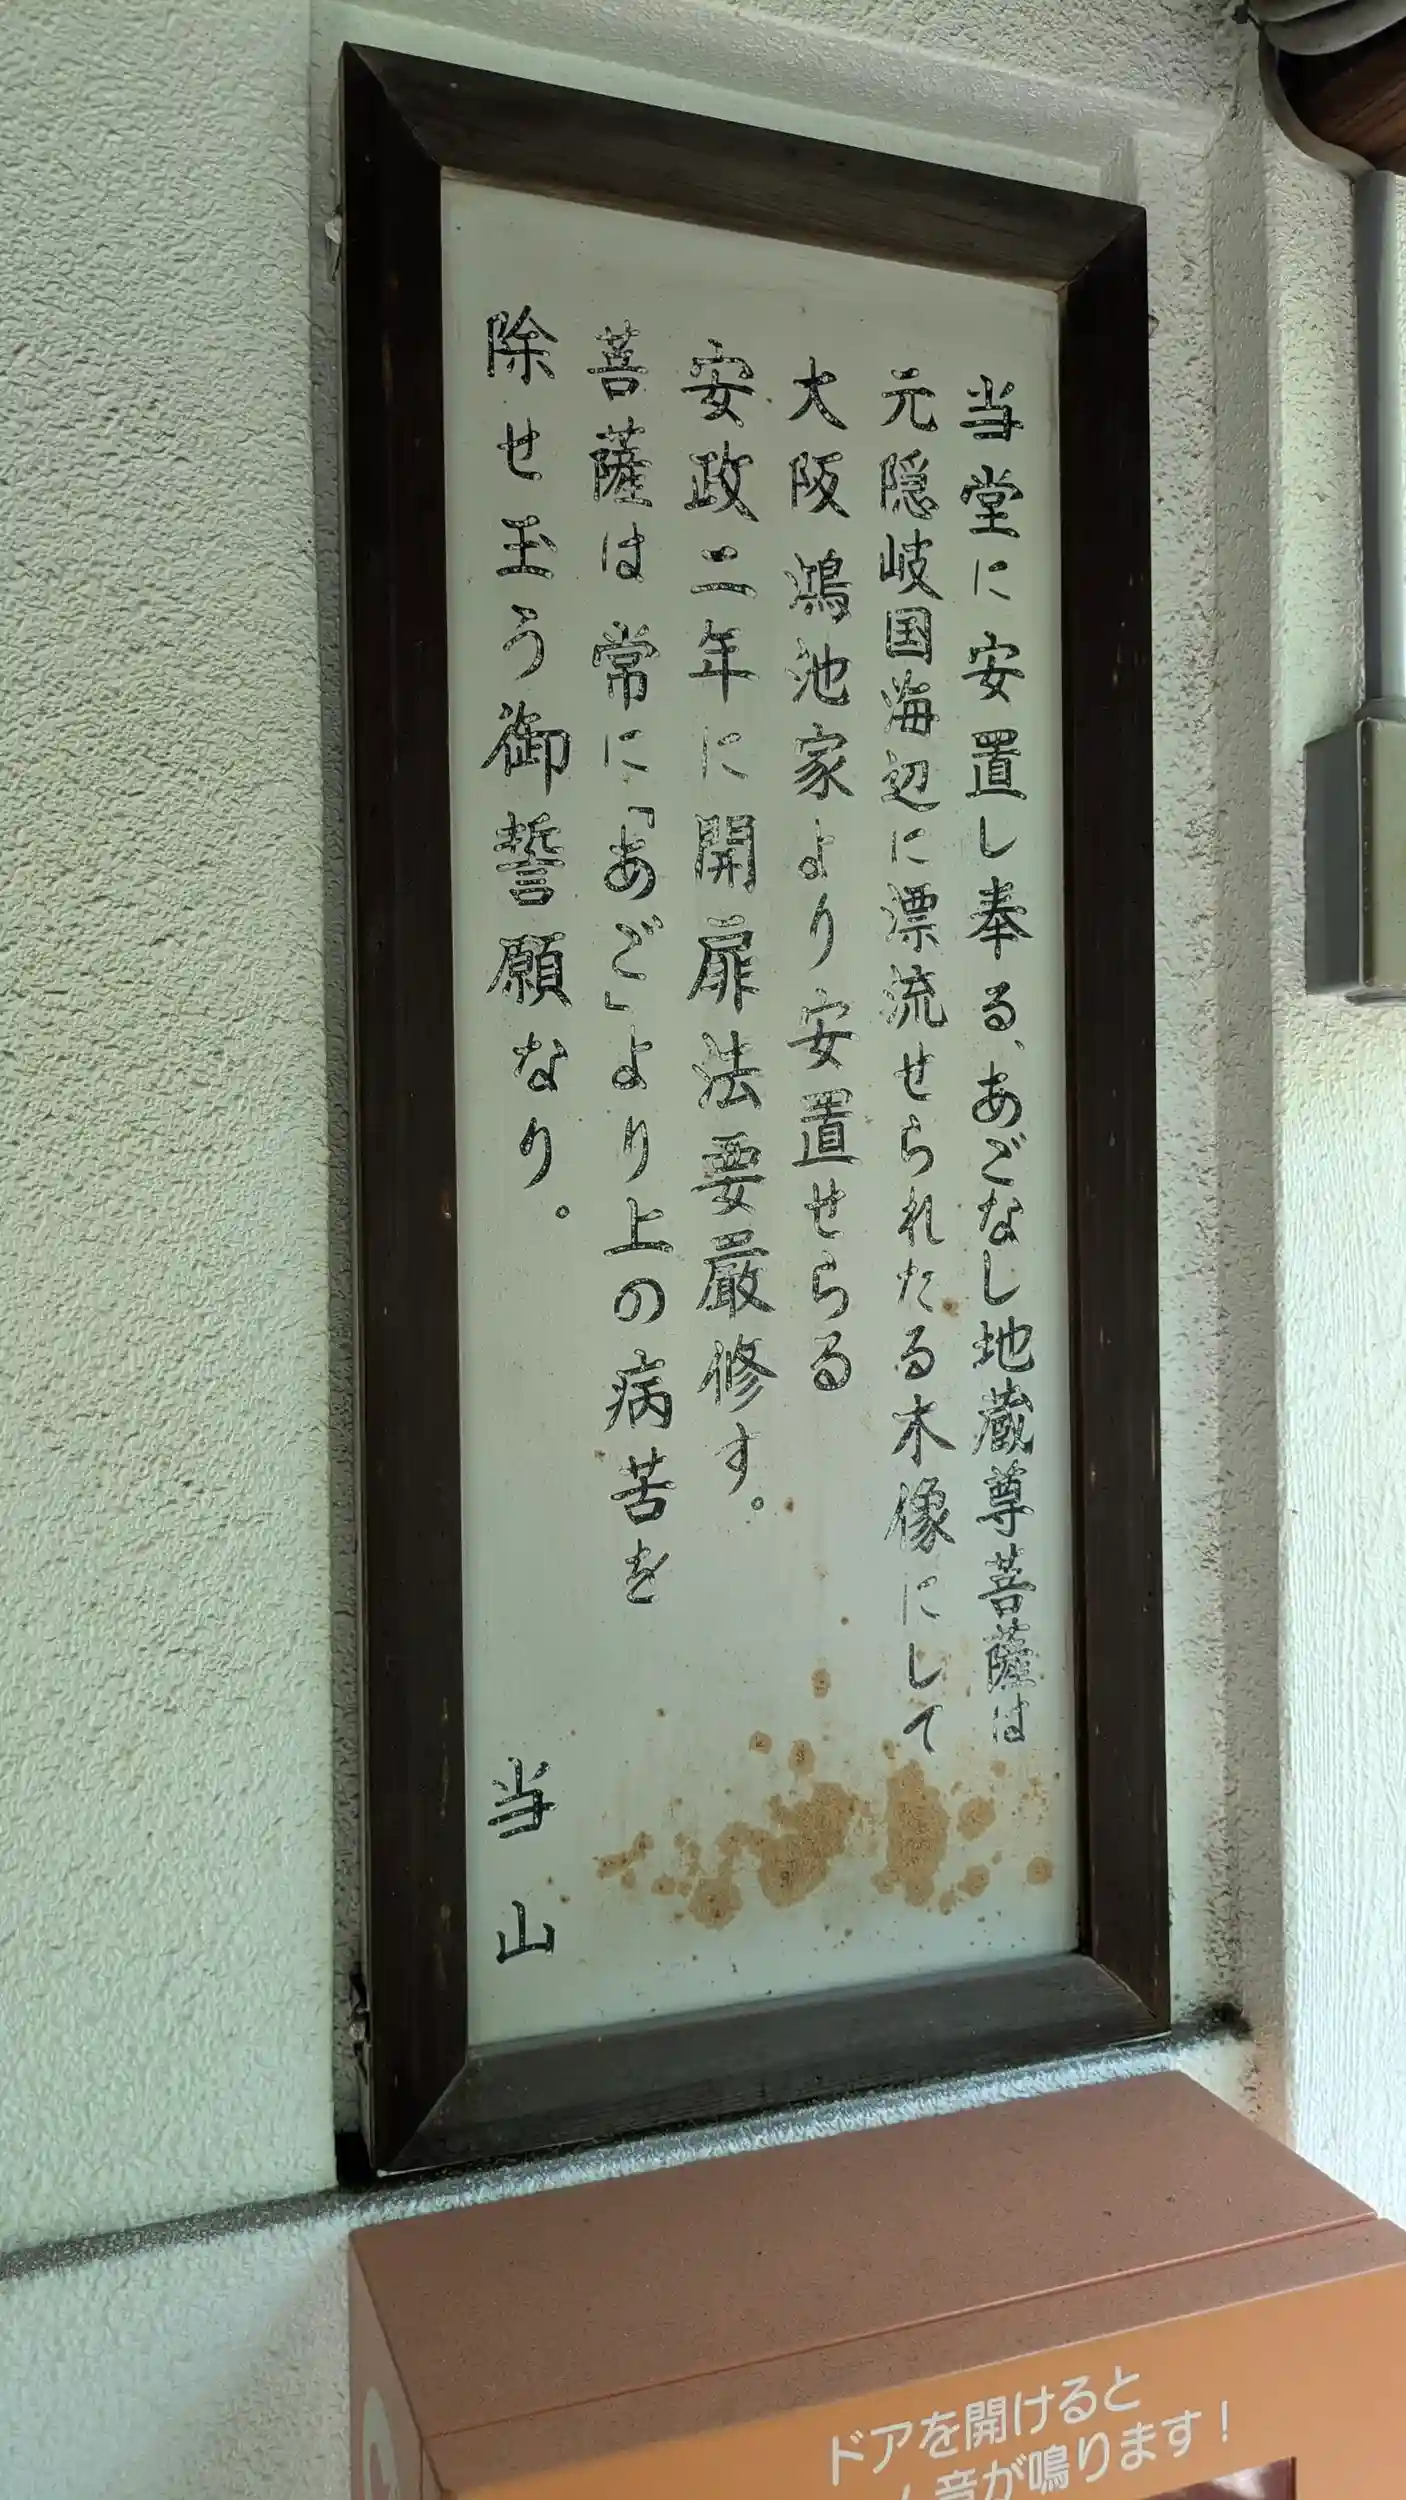 当堂に安置し奉る、あごなし地蔵尊菩薩は
元隠岐国海辺に漂流せられたる木像にして
大阪鴻池家より安置せらる
安政二年に開扉法要厳修す。
菩薩は常に「あご」より上の病苦を
除せ玉う御誓願なり。
当山
ドアを開けると
音が鳴ります！